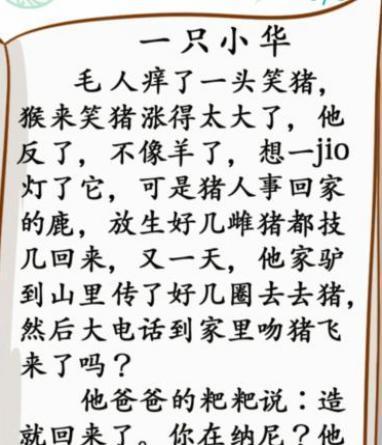 一只小华
毛人痒了一头笑猪，
猴来笑猪涨得太大了，他
反了，不像羊了，想一jio
灯了它，可是猪人事回家
的鹿，放生好几雌猪都技
几回来，又一天，他家驴
到山里传了好几圈去去猪，
然后大电话到家里吻猪飞
来了吗？
他爸爸的粑粑说：造
就回来了。你在纳尼？他